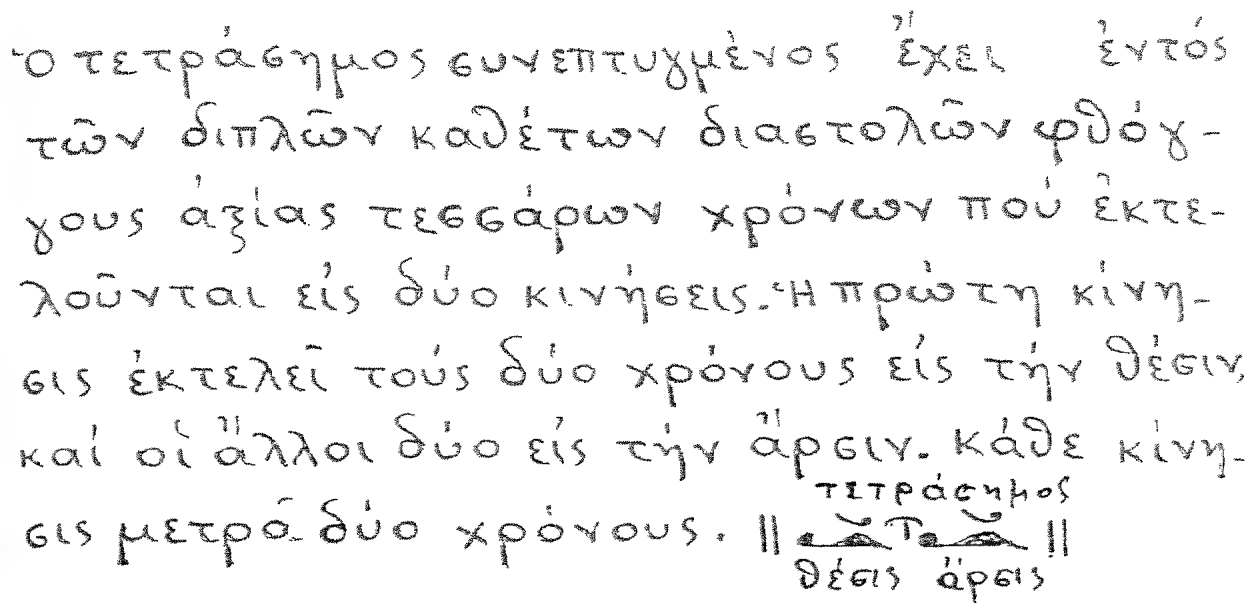 Ὁ τετράσημος συνεπτυγμένος ἔχει ἐντός
τῶν διπλῶν καθέτων διαστολῶν φθόγ-
γους ἀξίας τεσσάρων χρόνων πού ἐκτε-
λοῦνται εἰς δύο κινήσεις. Ἡ πρώτη κίνη-
σις ἐκτελεῖ τούς δύο χρόνους εἰς τήν θέσιν,
καί οἱ ἄλλοι δύο εἰς τήν ἄρσιν. Κάθε κίνη-
τετράσημος
σις μετρᾶ δύο χρόνους.
θέσις ἄρσις